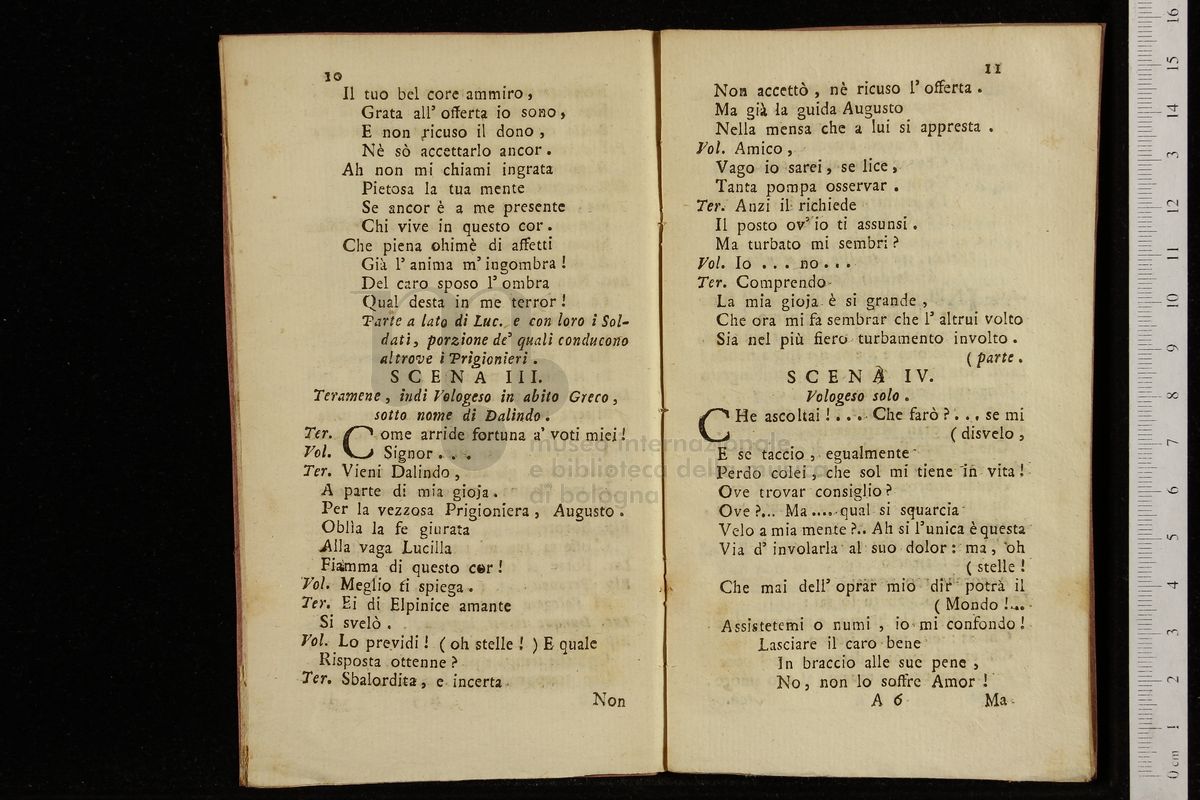 10
Il tuo bel core ammiro ,
Grata all' offerta io sono ,
E non ricuso il dono ,
Nè sò accettarlo ancor .
Ah non mi chiami ingrata
Pietosa la tua mente
Se ancor è a me presente
Chi vive in questo cor .
Che piena ohimè di affetti
Già l' anima m' ingombra !
Del caro sposo l' ombra
Qual desta in me terror !
Parte a lato di Luc. e con loro i Sol-
dati, porzione de' quali conducono
altrove i Prigionieri .
SCENA III.
Teramene , indi Vologeso in abito Greco ,
sotto nome di Dalindo .
Ter. Come arride fortuna a' voti miei !
Vol. Signor . . .
Ter. Vieni Dalindo ,
A parte di mia gioja .
Per la vezzosa Prigioniera , Augusto .
Oblìa la fe giurata
Alla vaga Lucilla
Fiamma di questo cor !
Vol. Meglio ti spiega .
Ter. Ei di Elpinice amante
Si svelò .
Vol. Lo previdi ! ( oh stelle ! ) E quale
Risposta ottenne ?
Ter. Sbalordita , e incerta
Non
11
Non accettò , nè ricuso l' offerta .
Ma già la guida Augusto
Nella mensa che a lui si appresta .
Vol. Amico ,
Vago io sarei , se lice ,
Tanta pompa osservar .
Ter. Anzi il richiede
Il posto ov' io ti assunsi .
Ma turbato mi sembri ?
Vol. Io . . . no . . .
Ter. Comprendo
La mia gioja è si grande ,
Che ora mi fa sembrar che l' altrui volto
Sia nel più fiero turbamento involto .
( parte .
SCENA IV.
Vologeso solo .
CHe ascoltai ! . . . Che farò ? . . . se mi
( disvelo ,
E se taccio , egualmente
Perdo colei , che sol mi tiene in vita !
Ove trovar consiglio ?
Ove ?... Ma .... qual si squarcia
Velo a mia mente ?.. Ah si l'unica è questa
Via d' involarla al suo dolor : ma , oh
( stelle !
Che mai dell' oprar mio dir potrà il
( Mondo !...
Assistetemi o numi , io mi confondo !
Lasciare il caro bene
In braccio alle sue pene ,
No , non lo soffre Amor !
A 6 Ma
museo internazionale
e biblioteca della musica
di bologna
0 cm 1 2 3 4 5 6 7 8 9 10 11 12 13 14 15 16